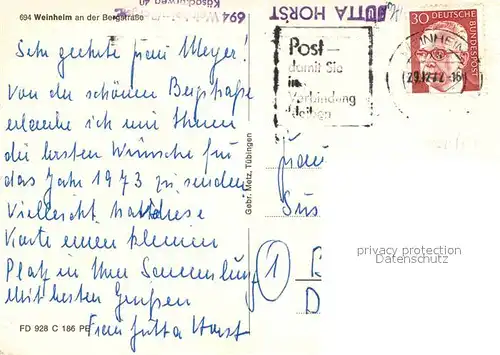 694 Weinheim an der Bergstraße
694
JUTTA HORST
Sehr geehrte Frau Meyer!
Von der schönen Bergstraße
erlaube ich mir Ihnen
die besten Wünsche für
das Jahr 1973 zu senden
Vielleicht hat diese
Karte einen kleinen
Platz in Ihrer Sammlung
Mit besten Grüßen
Frau Jutta Horst
FD 928 C 186 PE
Gebr. Metz, Tübingen
Post –
damit Sie
in
Verbindung
bleiben
WEINHEIM
29.12.72.-16
30 DEUTSCHE
BUNDESPOST
Frau
Sus
1
D
privacy protection
Datenschutz